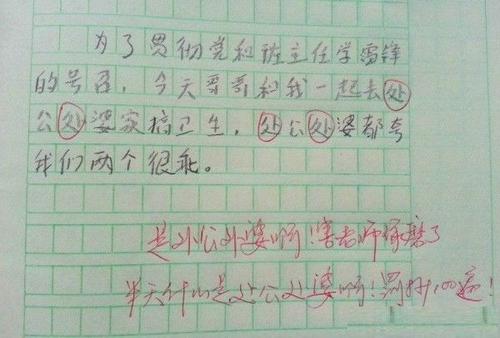 为了贯彻党和班主任学雷锋
的号召,今天哥哥和我一起去处
公处婆家搞卫生,处公处婆都夸
我们两个很乖。
是外公外婆啊!害老师琢磨了
半天什么是处公处婆啊!罚抄100遍!